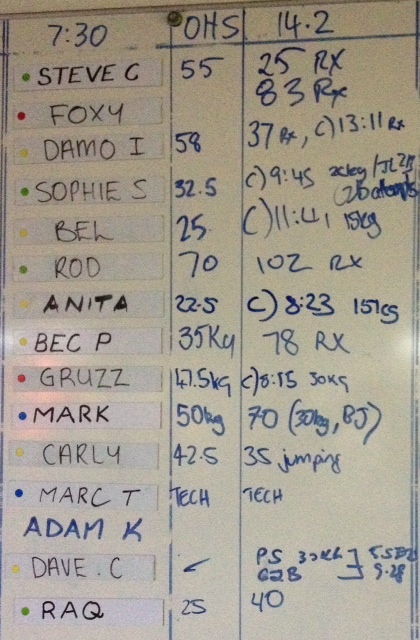 7:30 OHS 14.2
STEVE C 55 25 RX
FOXY 83 Rx
DAMO I 58 37 Rx, C) 13:11 Rx
SOPHIE S 32.5 C) 9:45
BEL 25 C) 11:41 15kg
ROD 70 102 RX
ANITA 22.5 C) 8:23 15kg
BEC P 35Kg 78 RX
GRUZZ 47.5kg C) 8:15 30KG
MARK 50kg 70 (30kg, BJ)
CARLY 42.5 35 jumping
MARC T TECH TECH
ADAM K
DAVE . C ✓ PS
RAQ 25 40